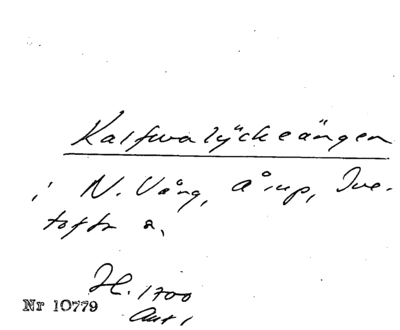 Kalfwalÿckeängen
i N. Vång, Åsup, Tve-
tofta s.
H. 1700
Akt 1
Nr 10779